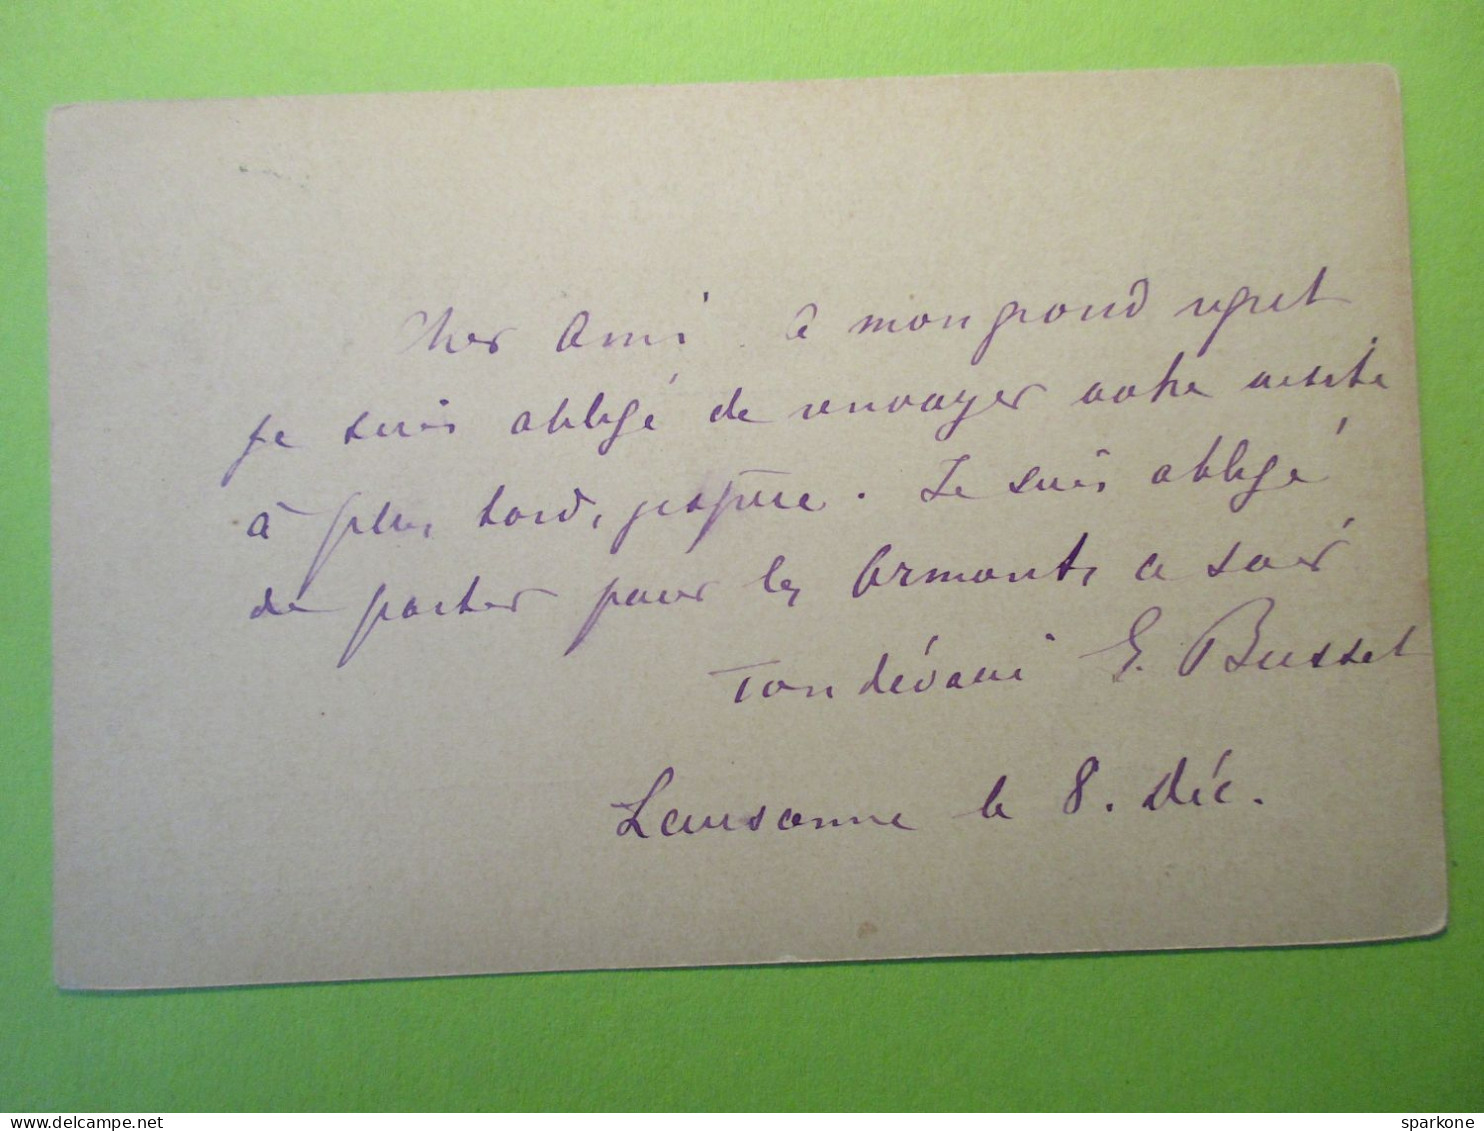 Cher Ami. à mon grand regret
je suis obligé de renvoyer votre visite
à plus tard, j'espère. Je suis obligé
de partir pour les Ormonts ce soir
Ton dévoué E. Busset
Lausanne le 8. Déc.
www.delcampe.net
sparkone